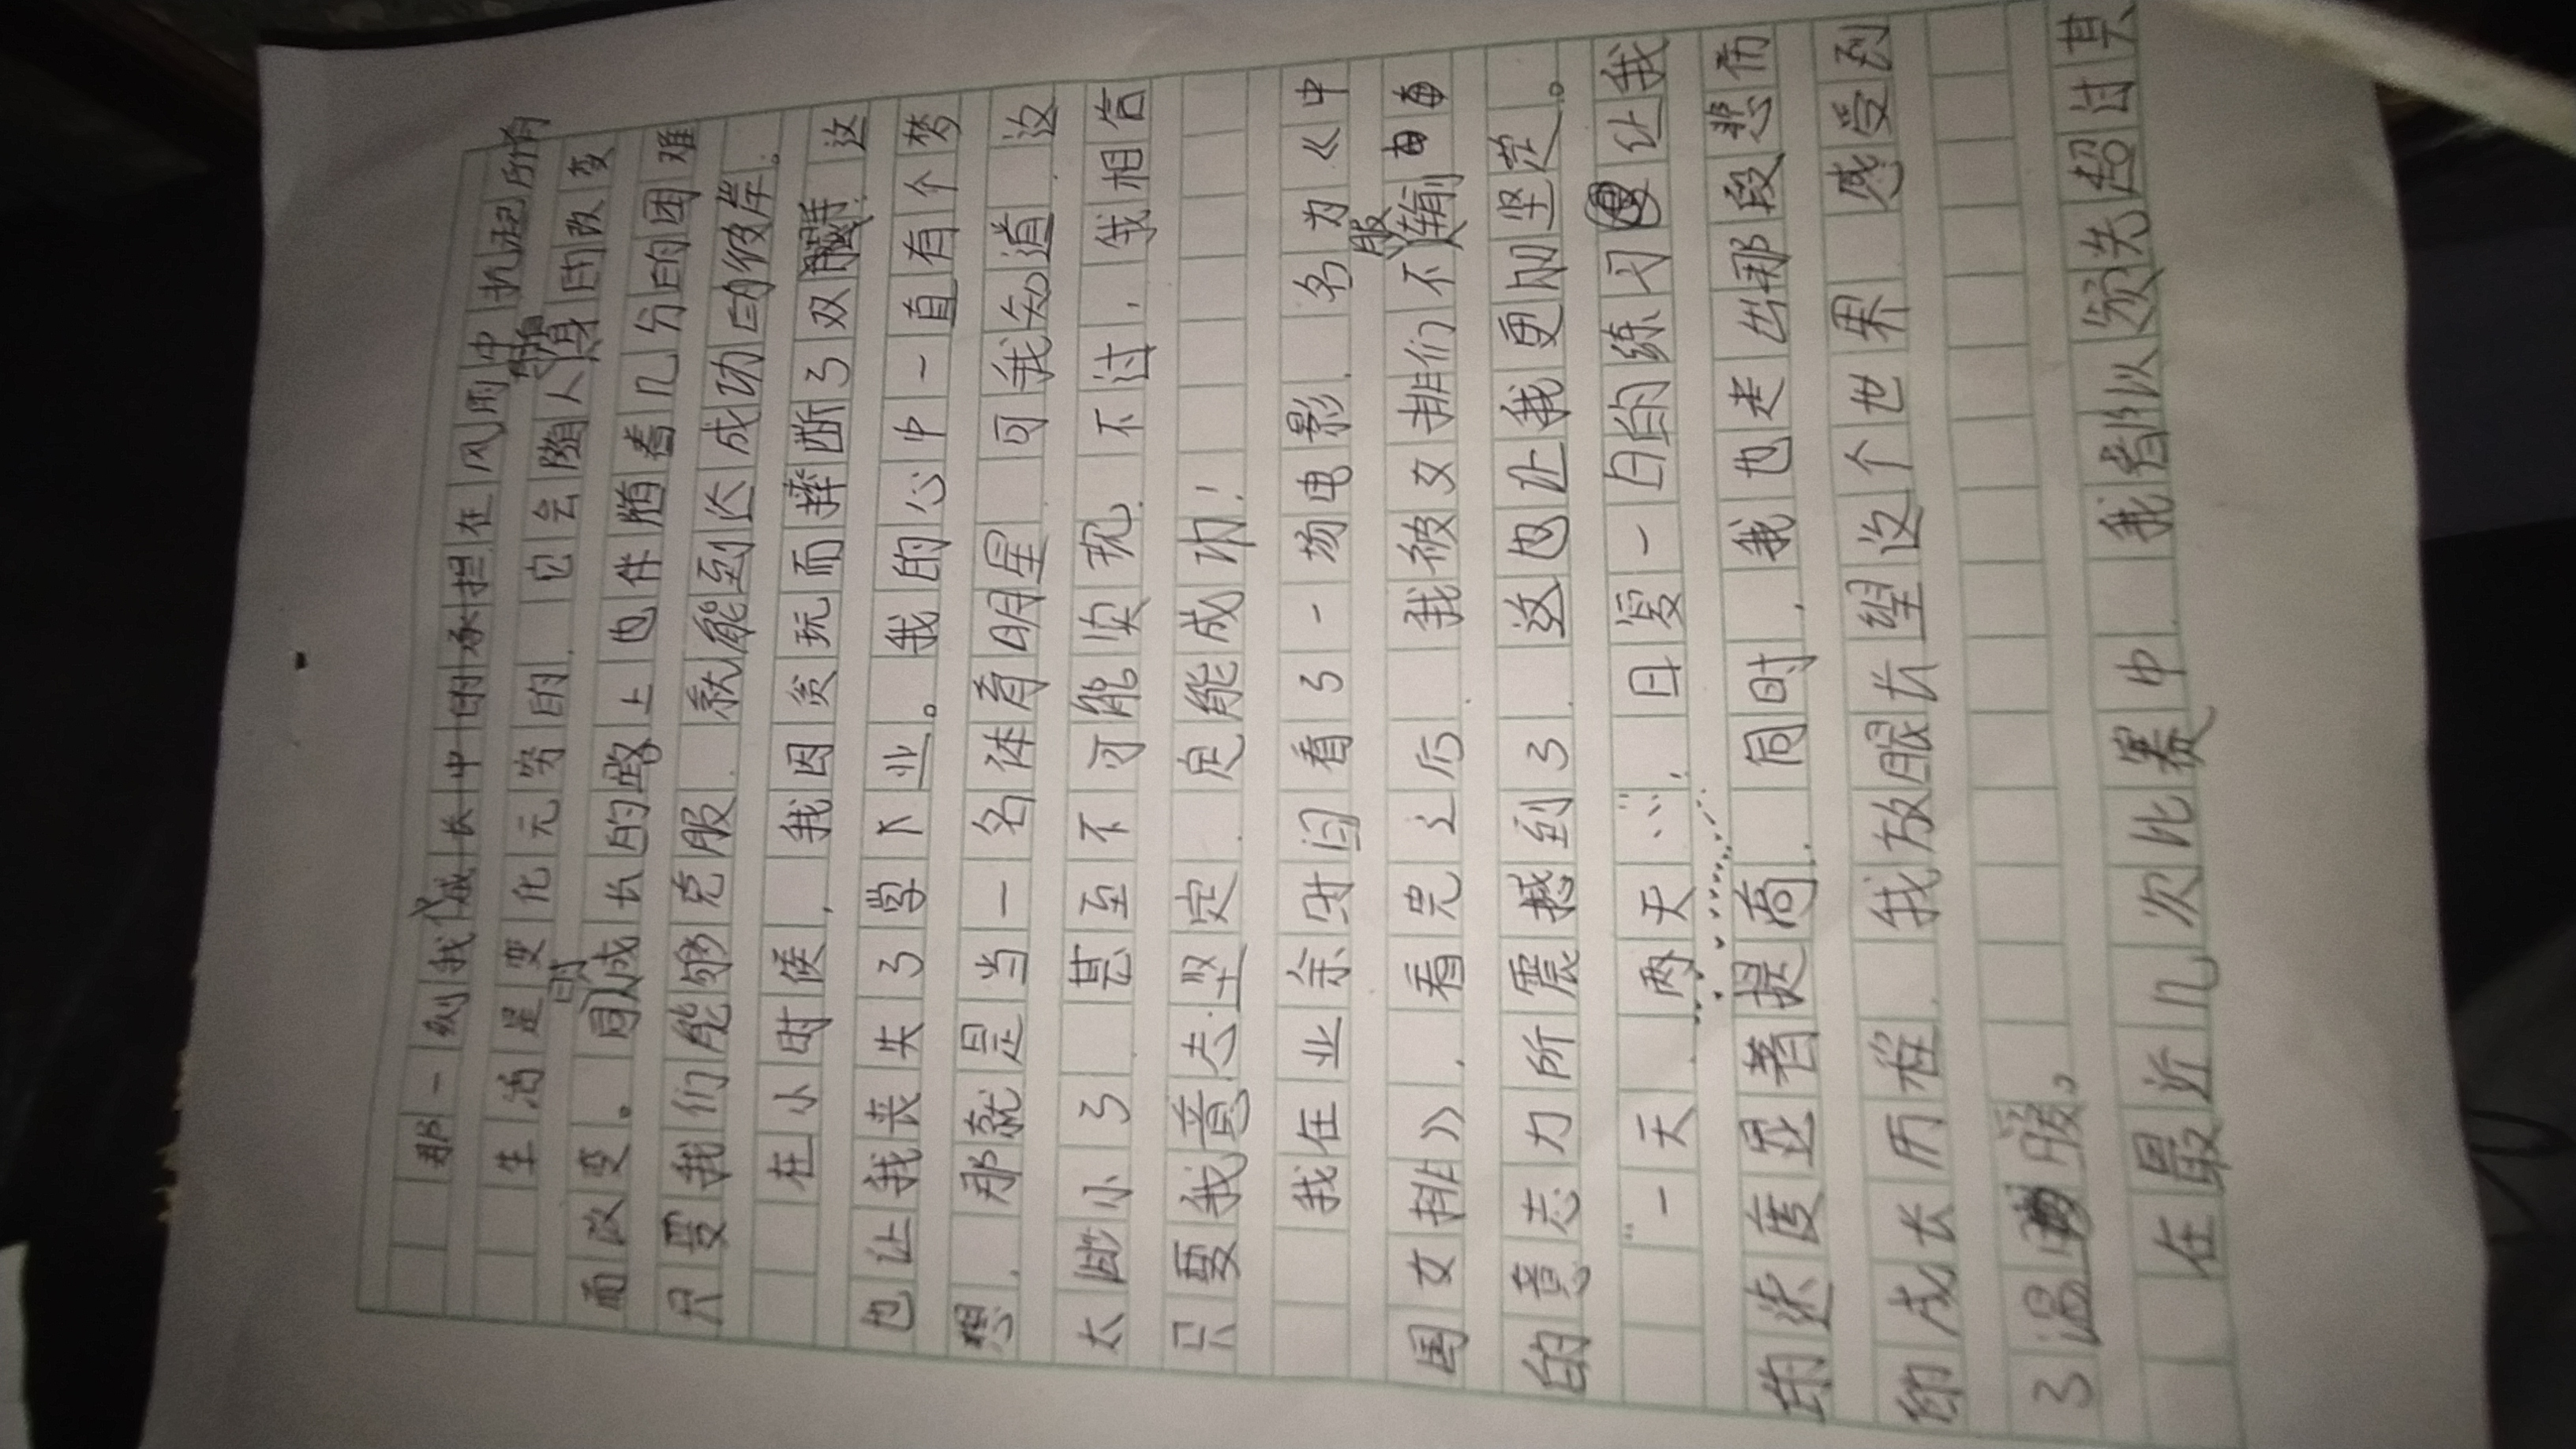 那一刻我成长中的承担在风雨中扎起所有
生活是变化无穷的，它会随人身的改变
而改变。同成长的路上也伴随着几分的困难
只要我们能够克服，就能到达成功的彼岸。
在小时候，我因贪玩而摔断了双手，这
也让我丧失了学业。我的心中一直有个梦
想，那就是当一名体育明星，可我知道，这
太渺小了，甚至不可能实现，不过，我相信
只要我意志坚定，定能成功！
我在业余时间看了一场电影，名为《中
国女排》，看完之后，我被女排们不服输
的意志力所震撼到了，这也让我更加坚定。
“一天，两天……”，日复一日的练习让我
的速度显著提高，同时，我也走出那段悲伤
的成长历程，我放眼长望这个世界，感受到
了温暖。
在最近几次比赛中，我者以领先超过其